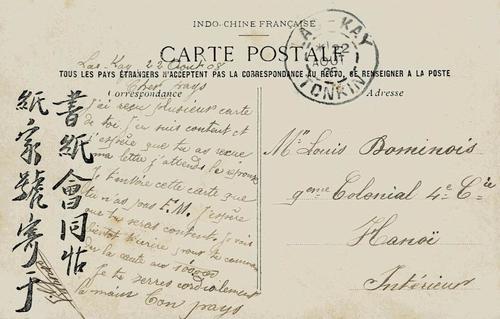 INDO-CHINE FRANÇAISE
CARTE POSTALE
TOUS LES PAYS ÉTRANGERS N'ACCEPTENT PAS LA CORRESPONDANCE AU RECTO, SE RENSEIGNER A LA POSTE
Correspondance
Adresse
LAO-KAY
22
AOUT
TONKIN
Lao-Kay 22 Août 08
Cher pays
J'ai reçu plusieurs carte
de toi J'en suis content et
j'espère que tu as recue
ma lettre j'attends la réponse
Je t'envoie cette carte que
tu n'as pas F.M. J'espère
que tu seras content, Je vais
bientôt écrire pour te
de la
Je te serres cordialement
la main Ton pays
書紙會同帖
紙家號寄于
Mr Louis Bominois
9eme Colonial 4e Cie
Hanoï
Intérieur